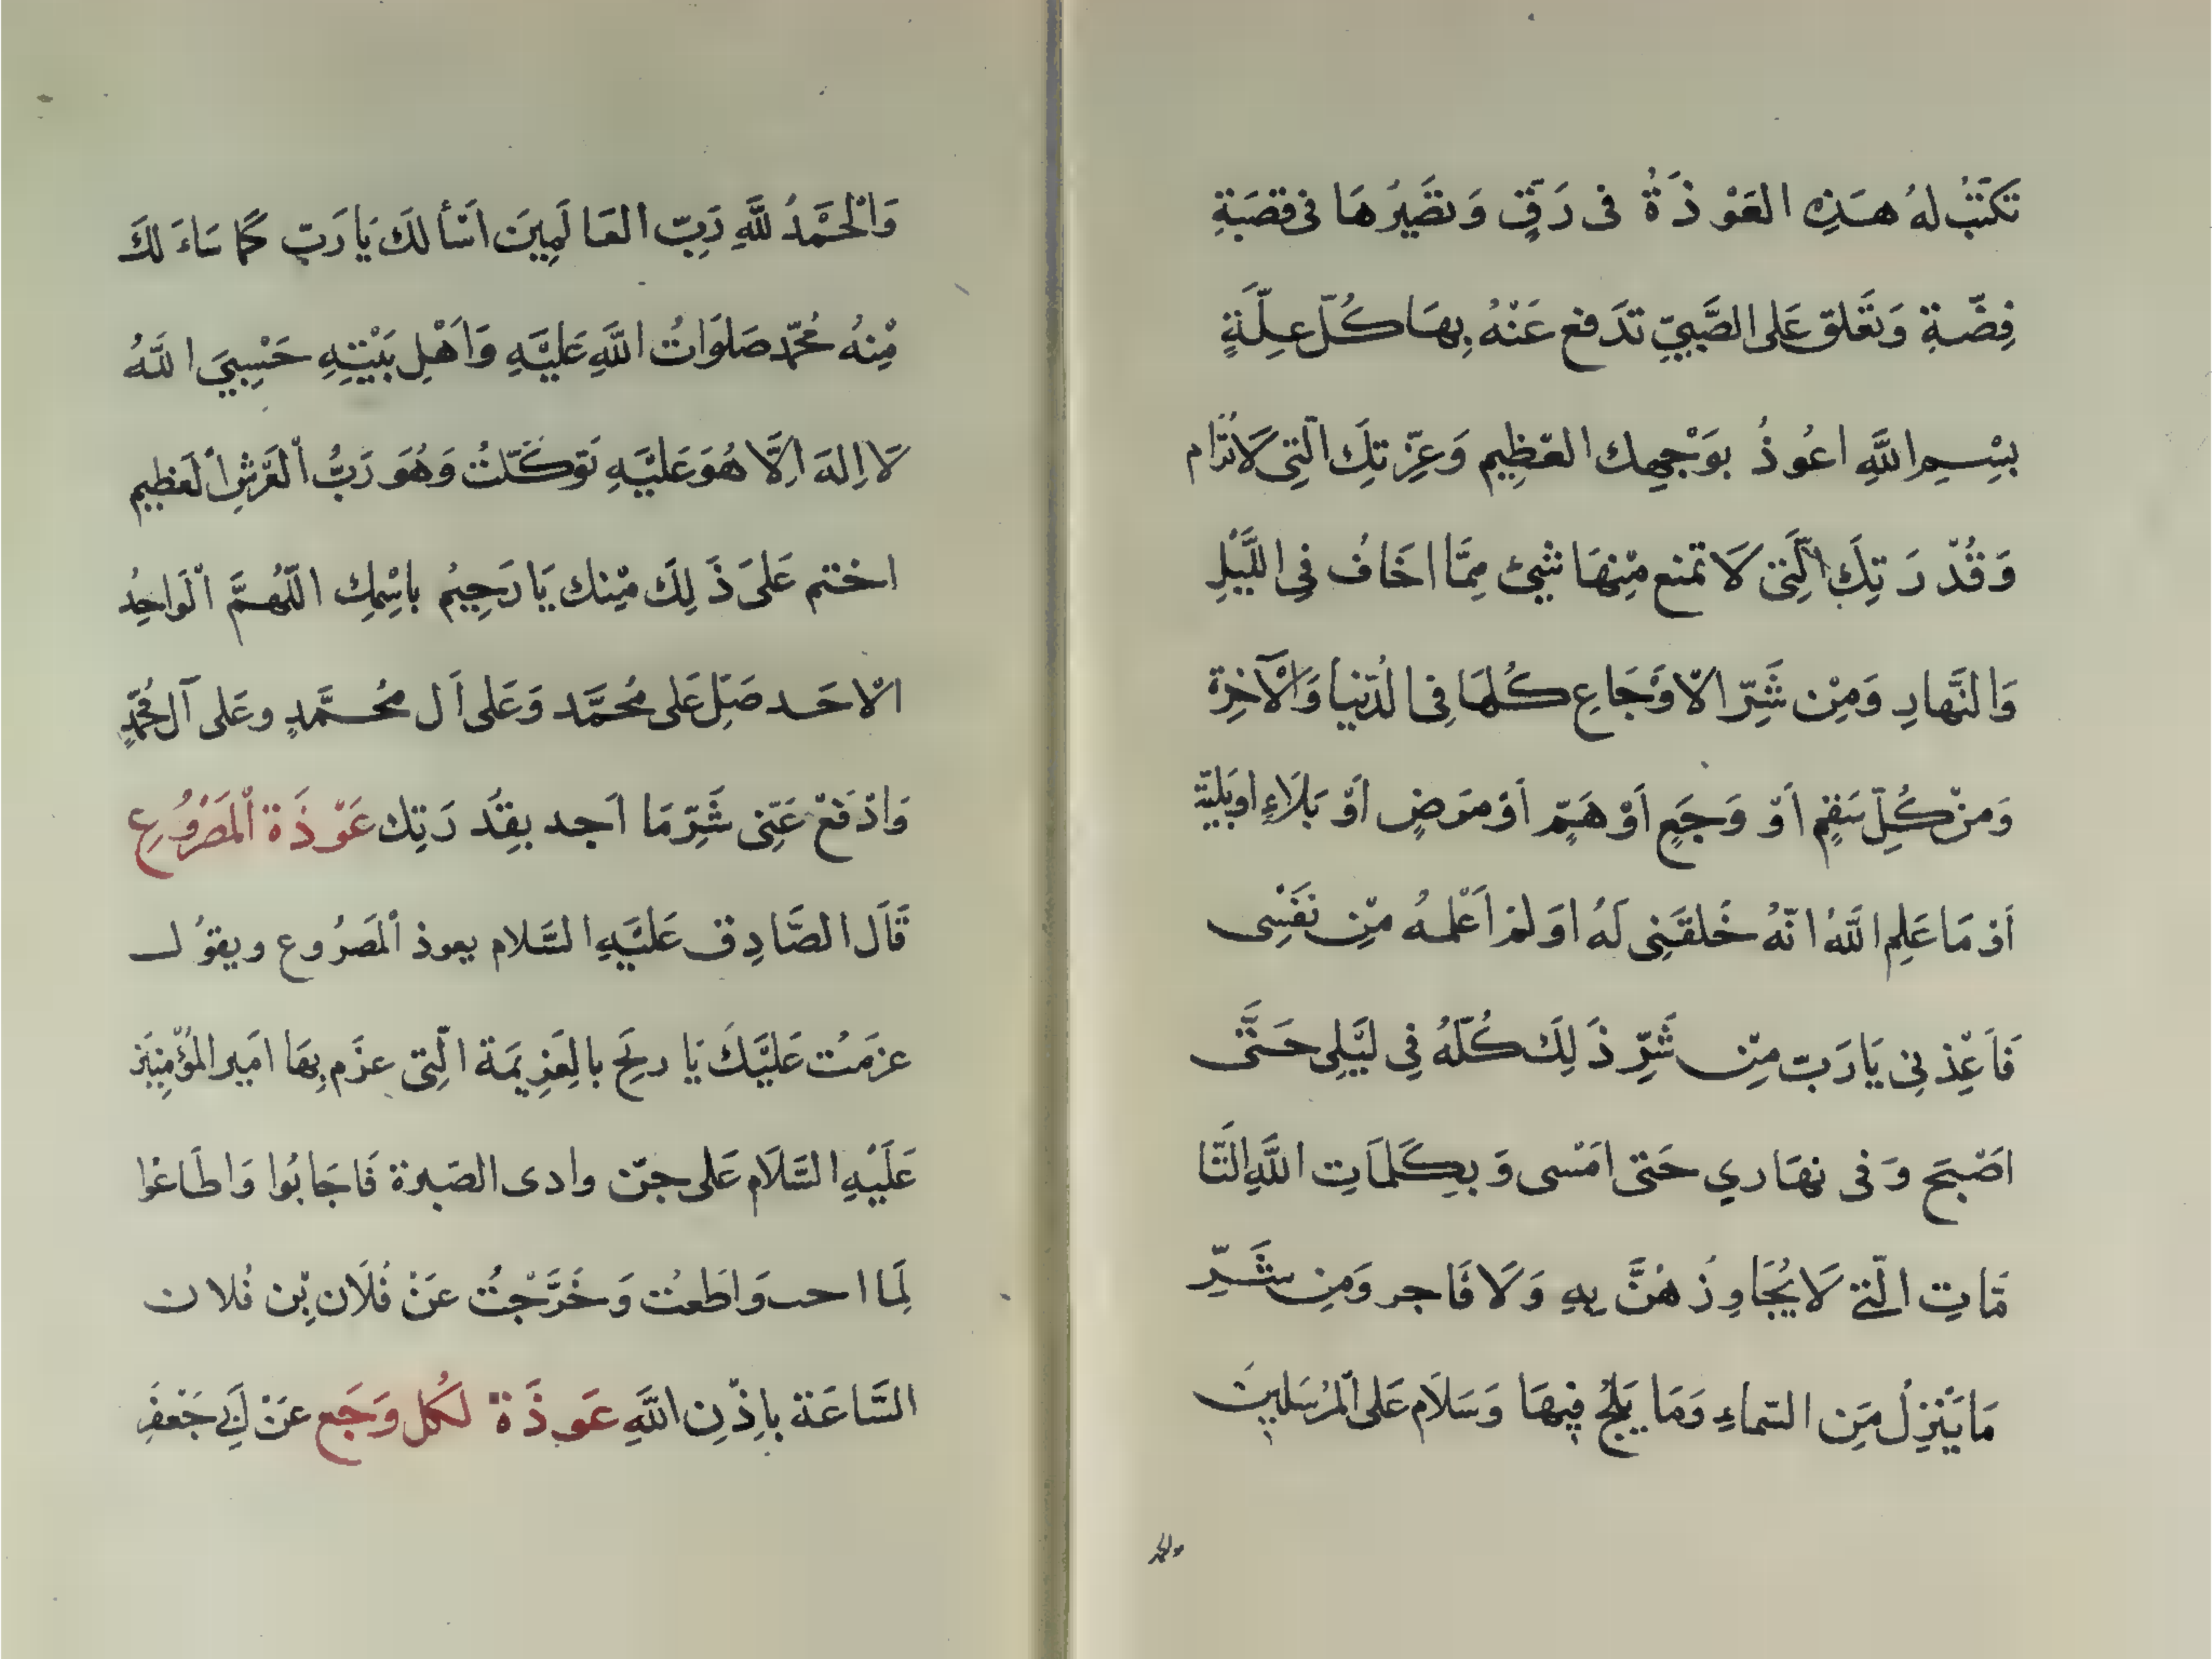 تَكتَبُ لهُ هَذِهِ العَوْذَةُ فى رَقٍّ وَتصَيَّرُهَا فى قصَبَةِ
فِضّةِ وَتعَلق عَلى الصَّبِيّ تدَفع عَنْهُ بِهَا كُلّ عِلّةٍ
بِسْمِ اللَّهِ اعُوذُ بوَجْهِك العَظِيم وَعِزّتِكَ الّتِى لَا تُرَام
وَقُدْرَتِكَ الّتِى لَا تمنع مِنْهَا شَىْئ مِمَّا اخَافُ فِى اللَّيْلِ
وَالنَّهارِ وَمِنْ شَرِّ الاوْجَاعِ كُلهَا فِى الدُنيا وَالْآخِرَة
وَمنْ كُلِّ سَقمٍ أوْ وَجَعٍ أوْ هَمٍّ أوْ مرَضٍ أوْ بَلَاءٍ اوبَليّة
أوْ مَا عَلِم اللَّهُ انّهُ خَلقَنِى لَهُ اوَ لمْ اَعْلمهُ مِنْ نَفْسِى
فَأعِذْنِى يَا رَبّ مِنْ شَرِّ ذَلِكَ كُلّهُ فِى لَيْلِى حَتَّى
اصْبحَ وَفى نهَارِي حَتى امْسى وَبكَلمَاتِ اللَّهِ التَّا
مّاتِ الّتى لَا يُجَاوِزُهُنَّ بِهِ وَلَا فَاجر وَمِن شَرِّ
مَا يَنْزِلُ مِنَ السّماءِ وَمَا يَلِجُ فِيهَا وَسَلَام عَلى الْمُرْسَلينَ
والحمد
وَالْحَمْدُ للَّهِ رَبِّ العَالَمِينَ اَسْأَلكَ يَا رَبّ كَمَا سَاءَلكَ
مِنْهُ مُحَمّد صَلوَاتُ اللَّهِ عَليْهِ وَاَهْلِ بَيْتِهِ حَسْبِيَ اللَّهُ
لَا اِلهَ اِلَّا هُوَ عَليْهِ تَوَكَّلتُ وَهُوَ رَبُّ الْعَرْشِ الْعَظِيم
اختم عَلىَ ذَلِكَ مِنك يَا رَحِيمُ باسْمِكِ اللّهُمَّ الْوَاحِدُ
الاحَد صَلِّ عَلى مُحَمَّد وَعَلى اَل مُحَمَّدٍ وعَلى آل مُحَمّدٍ
وَادْفَعْ عَنِّى شَرّ مَا اَجد بقِدْرَتِك عَوْذَة الْمَصْرُوعِ
قَالَ الصَّادِق عَليْهِ السَّلام يعوذ الْمصَرُوع ويقوُل
عزمَتُ عَليْكَ يَا ريَح بالعَزِيمَة الّتِى عزَم بِهَا امَير الْمؤْمِنِينَ
عَلَيْهِ السَّلَام عَلى جنّ وادى الصَبرَة فَاجَابُوا وَاطَاعُوا
لَمَا احب وَاطَعتُ وَخَرَّجْتُ عَنْ فُلَان بْن فُلان
السَّاعَة بِاِذْنِ اللَّهِ عَوذَة لكُل وَجَع عَنْ اَبِى جَعْفَرِ